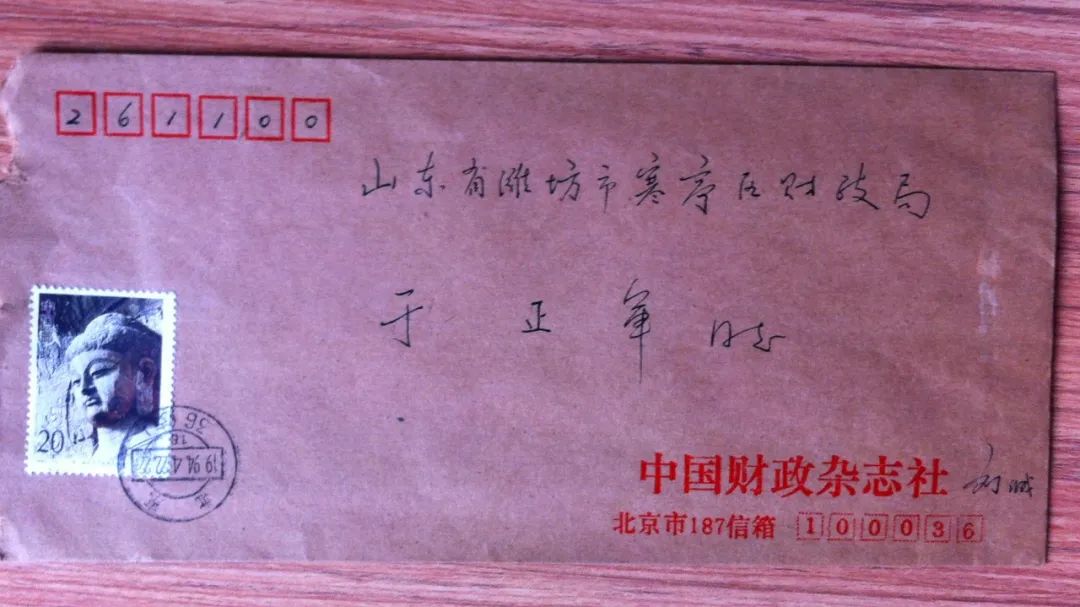 261100
山东省潍坊市寒亭区财政局
于正军同志
20
中国财政杂志社
北京市187信箱 100036